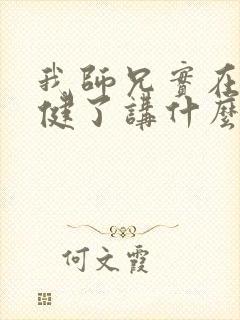 我師兄實在
健了講什麼
何文霞